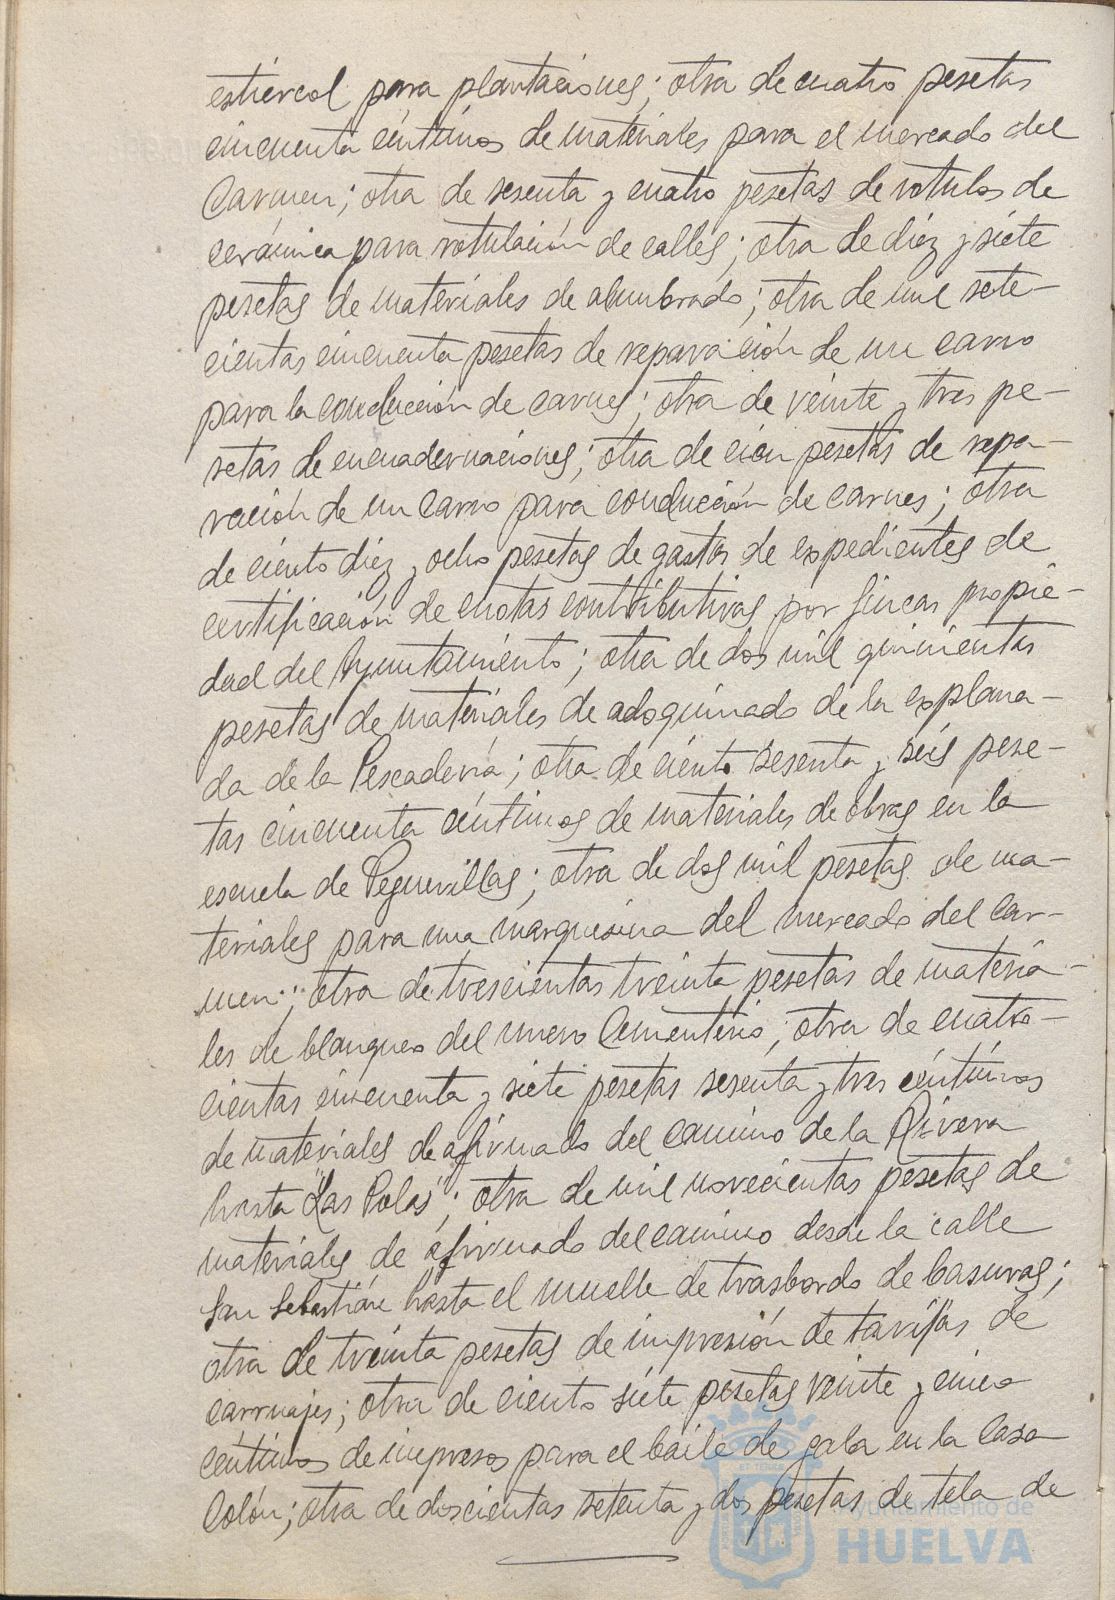 estiércol para plantaciones; otra de cuatro pesetas
cincuenta céntimos de materiales para el mercado del
Carmen; otra de sesenta y cuatro pesetas de rotulos de
cerámica para rotulación de calles; otra de diez y siete
pesetas de materiales de alumbrado; otra de mil sete-
cientas cincuenta pesetas de reparación de un carro
para la conducción de carnes; otra de veinte y tres pe-
setas de encuadernaciones; otra de cien pesetas de repa-
ración de un carro para conducción de carnes; otra
de ciento diez y ocho pesetas de gastos de expedientes de
certificación de cuotas contributivas por fincas propie-
dad del Ayuntamiento; otra de dos mil quinientas
pesetas de materiales de adoquinado de la explana-
da de la Pescadería; otra de ciento sesenta y seis pese-
tas cincuenta céntimos de materiales de obras en la
escuela de Peguerillas; otra de dos mil pesetas de ma-
teriales para una marquesina del mercado del Car-
men; otra de trescientas treinta pesetas de materia-
les de blanqueo del nuevo Cementerio; otra de cuatro-
cientas cincuenta y siete pesetas sesenta y tres céntimos
de materiales de afirmado del camino de la Rivera
hasta "Las Colas"; otra de mil novecientas pesetas de
materiales de afirmado del camino desde la calle
San Sebastián hasta el muelle de trasbordo de basuras;
otra de treinta pesetas de impresión de tarifas de
carruajes; otra de ciento siete pesetas veinte y cinco
céntimos de impresos para el baile de gala en la Casa
Colón; otra de doscientas setenta y dos pesetas de tela de
Ayuntamiento de
HUELVA